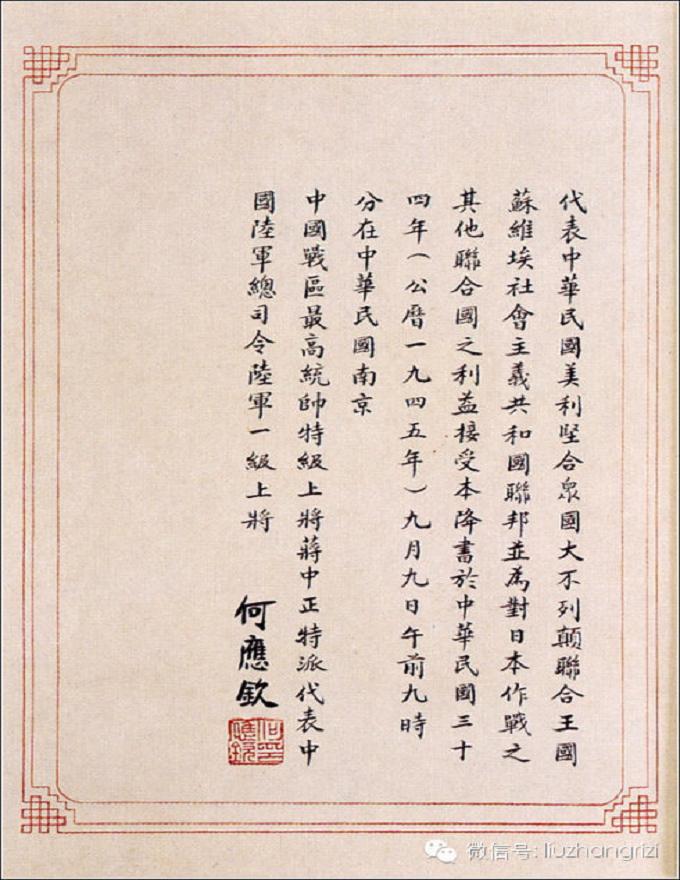 代表中華民國美利堅合衆國大不列顛聯合王國
蘇維埃社會主義共和國聯邦並為對日本作戰之
其他聯合國之利益接受本降書於中華民國三十
四年(公曆一九四五年)九月九日午前九時
分在中華民國南京
中國戰區最高統帥特級上將蔣中正特派代表中
國陸軍總司令陸軍一級上將
何應欽
何應欽印
微信号: liuzhangrizi